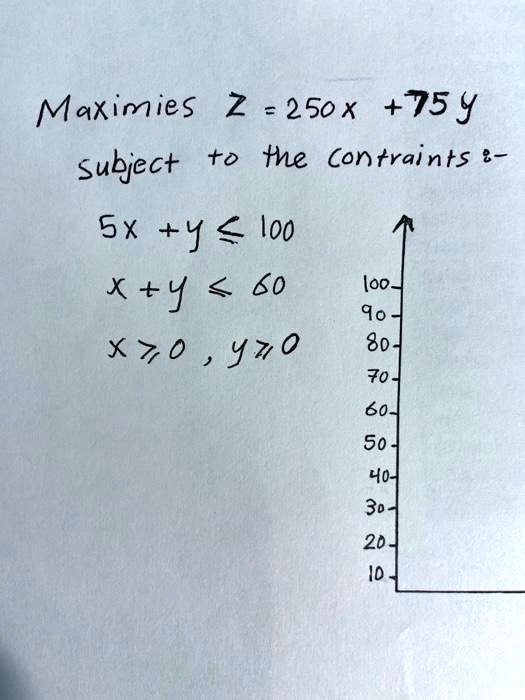 Maximies Z = 250x + 75y
Subject to the Contraints :-
5x + y ≤ 100
x + y ≤ 60
x ⩾ 0 , y ⩾ 0
100
90
80
70
60
50
40
30
20
10